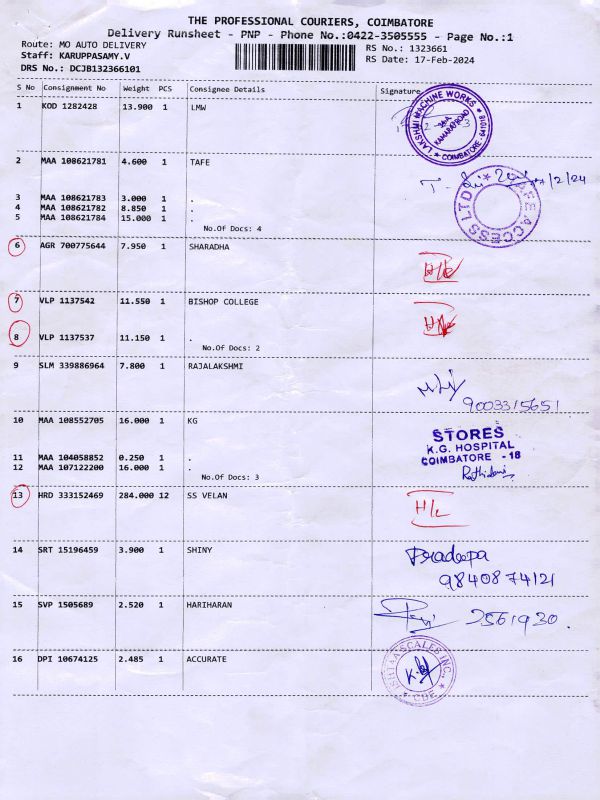 THE PROFESSIONAL COURIERS, COIMBATORE
Delivery Runsheet - PNP - Phone No.:0422-3505555 - Page No.:1
Route: MO AUTO DELIVERY
RS No.: 1323661
Staff: KARUPPASAMY.V
RS Date: 17-Feb-2024
DRS No.: DCJB132366101
S No Consignment No Weight PCS Consignee Details Signature
1 KOD 1282428 13.900 1 LMW
LAKSHMI MACHINE WORKS
KAMARAJ ROAD
COIMBATORE - 641018
2 MAA 108621781 4.600 1 TAFE
3 MAA 108621783 3.000 1 .
4 MAA 108621782 8.850 1 .
5 MAA 108621784 15.000 1 .
No.Of Docs: 4
ACCESS LTD
6 AGR 700775644 7.950 1 SHARADHA
7 VLP 1137542 11.550 1 BISHOP COLLEGE
8 VLP 1137537 11.150 1 .
No.Of Docs: 2
9 SLM 339886964 7.800 1 RAJALAKSHMI
9003315651
10 MAA 108552705 16.000 1 KG
STORES
K.G. HOSPITAL
COIMBATORE - 18
11 MAA 104058852 0.250 1 .
12 MAA 107122200 16.000 1 .
No.Of Docs: 3
13 HRD 333152469 284.000 12 SS VELAN
14 SRT 15196459 3.900 1 SHINY
Pradeepa
9840874121
15 SVP 1505689 2.520 1 HARIHARAN
2561930.
16 DPI 10674125 2.485 1 ACCURATE
SCALES INC.